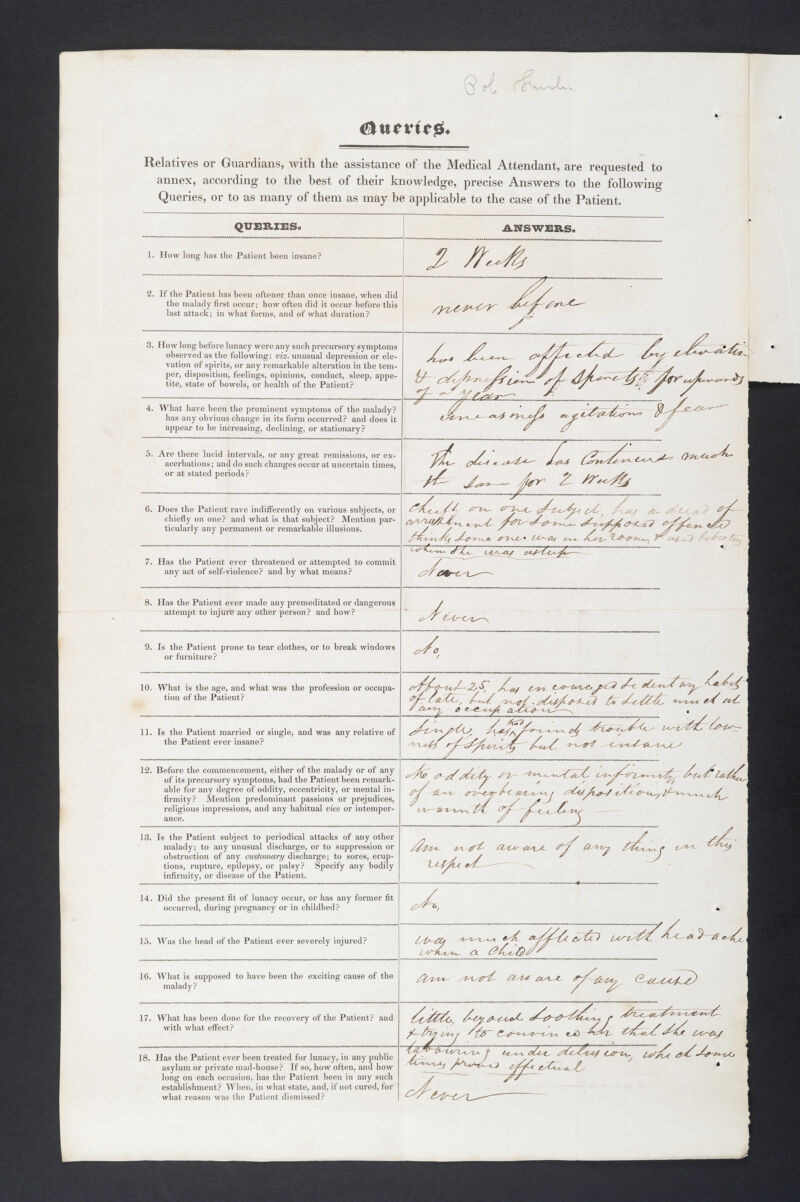 Queries.
Relatives or Guardians, with the assistance of the Medical Attendant, are requested to
annex, according to the best of their knowledge, precise Answers to the following
Queries, or to as many of them as may be applicable to the case of the Patient.
QUERIES.
ANSWERS.
1. How long has the Patient been insane?
2 Weeks
2. If the Patient has been oftener than once insane, when did
the malady first occur; how often did it occur before this
last attack; in what forms, and of what duration?
never before
3. How long before lunacy were any such precursory symptoms
observed as the following: viz. unusual depression or ele-
vation of spirits, or any remarkable alteration in the tem-
per, disposition, feelings, opinions, conduct, sleep, appe-
tite, state of bowels, or health of the Patient?
has been affected by elevation
& depression of Spirets for upwards
of a year
4. What have been the prominent symptoms of the malady?
has any obvious change in its form occurred? and does it
appear to be increasing, declining, or stationary?
uneasiness agitation & fear
5. Are there lucid intervals, or any great remissions, or ex-
acerbations; and do such changes occur at uncertain times,
or at stated periods?
The disease has Continued much
the same for 2 Weeks
6. Does the Patient rave indifferently on various subjects, or
chiefly on one? and what is that subject? Mention par-
ticularly any permanent or remarkable illusions.
Chiefly on one Subject, has a dread of
for some supposed offence
thinks some one was in her room, & used
when she was asleep
7. Has the Patient ever threatened or attempted to commit
any act of self-violence? and by what means?
Never
8. Has the Patient ever made any premeditated or dangerous
attempt to injure any other person? and how?
Never
9. Is the Patient prone to tear clothes, or to break windows
or furniture?
No,
10. What is the age, and what was the profession or occupa-
tion of the Patient?
About 25, has encouraged Sedentary habits
of late, but not disposed to Settle much at
any occupation
11. Is the Patient married or single, and was any relative of
the Patient ever insane?
Single, had trouble with low-
ness of Spirits but not insane
12. Before the commencement, either of the malady or of any
of its precursory symptoms, had the Patient been remark-
able for any degree of oddity, eccentricity, or mental in-
firmity? Mention predominant passions or prejudices,
religious impressions, and any habitual vice or intemper-
ance.
No oddity or mental infirmity, but rather
of an overbearing disposition, & much
warmth of feeling
13. Is the Patient subject to periodical attacks of any other
malady; to any unusual discharge, or to suppression or
obstruction of any customary discharge; to sores, erup-
tions, rupture, epilepsy, or palsy? Specify any bodily
infirmity, or disease of the Patient.
am not aware of any thing in this
respect
14. Did the present fit of lunacy occur, or has any former fit
occurred, during pregnancy or in childbed?
No,
15. Was the head of the Patient ever severely injured?
was much afflicted with headache
when a Child
16. What is supposed to have been the exciting cause of the
malady?
am not aware of any cause
17. What has been done for the recovery of the Patient? and
with what effect?
little, beyond Soothing treatment
& trying to convince her that She was
labouring under delusion, which some
times proved effectual
18. Has the Patient ever been treated for lunacy, in any public
asylum or private mad-house? If so, how often, and how
long on each occasion, has the Patient been in any such
establishment? When, in what state, and, if not cured, for
what reason was the Patient dismissed?
Never